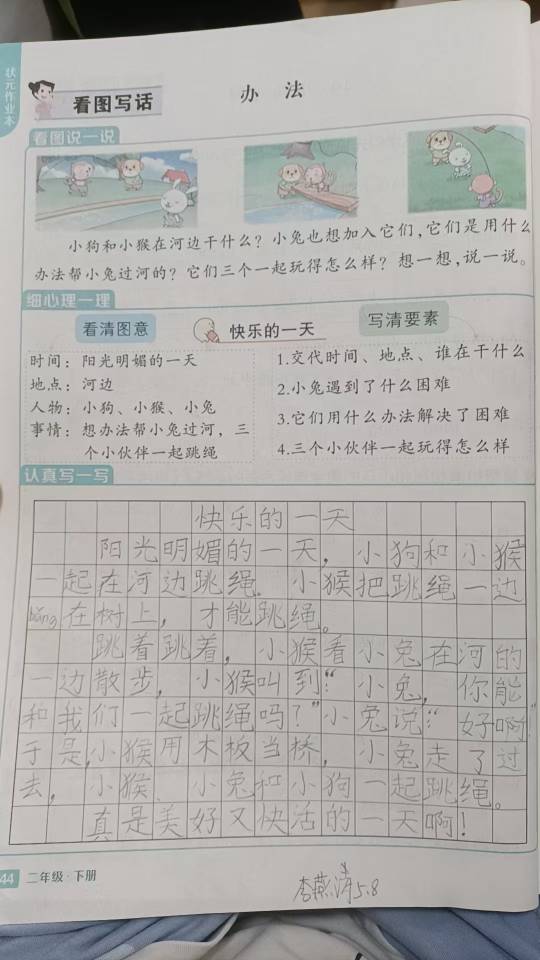 状元作业本
看图写话
办法
看图说一说
小狗和小猴在河边干什么？小兔也想加入它们，它们是用什么
办法帮小兔过河的？它们三个一起玩得怎么样？想一想，说一说。
细心理一理
看清图意
快乐的一天
写清要素
时间：阳光明媚的一天
地点：河边
人物：小狗、小猴、小兔
事情：想办法帮小兔过河，三
个小伙伴一起跳绳
1.交代时间、地点、谁在干什么
2.小兔遇到了什么困难
3.它们用什么办法解决了困难
4.三个小伙伴一起玩得怎么样
认真写一写
快乐的一天
阳光明媚的一天，小狗和小猴
一起在河边跳绳。小猴把跳绳一边
bǎng在树上，才能跳绳。
跳着跳着，小猴看小兔在河的
一边散步，小猴叫到：“小兔，你能
和我们一起跳绳吗？”小兔说：“好啊！”
于是，小猴用木板当桥，小兔走了过
去，小猴、小兔和小狗一起跳绳。
真是美好又快活的一天啊！
44 二年级·下册
5.8